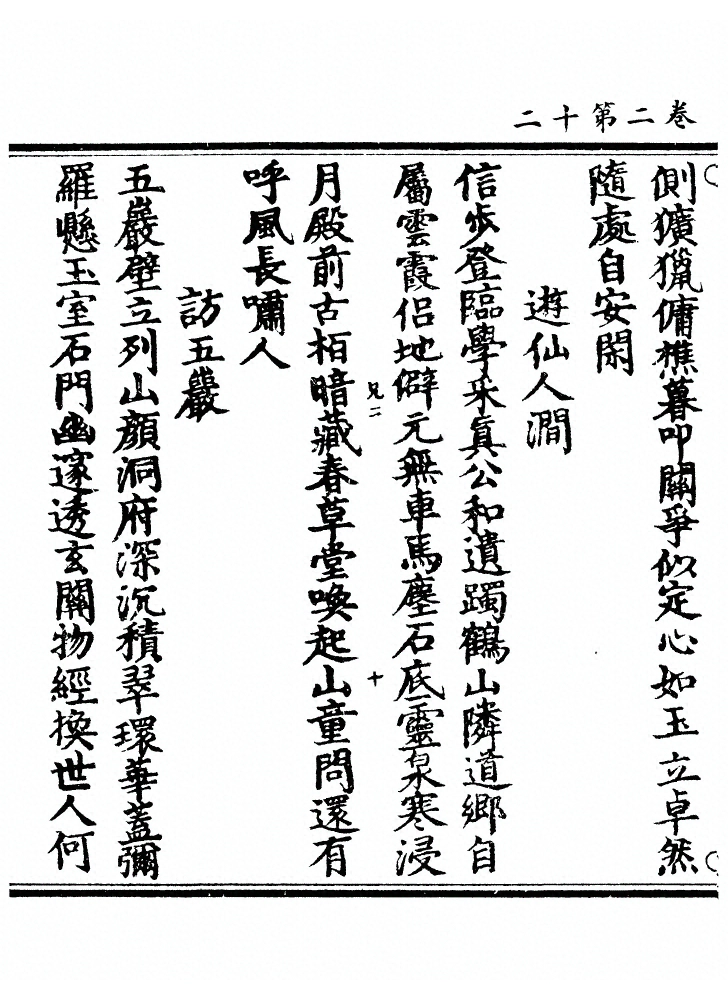 卷二第十二
側獷獵傭樵暮叩關爭似定心如玉立卓然
隨處自安閑
遊仙人澗
信步登臨學采真公和遺躅鶴山隣道鄉自
屬雲霞侶地僻元無車馬塵石底靈泉寒浸
兄二
十
月殿前古柏暗藏春草堂喚起山童問還有
呼風長嘯人
訪五巖
五巖壁立列山顏洞府深沉積翠環華蓋彌
羅懸玉室石門幽邃透玄關物經換世人何